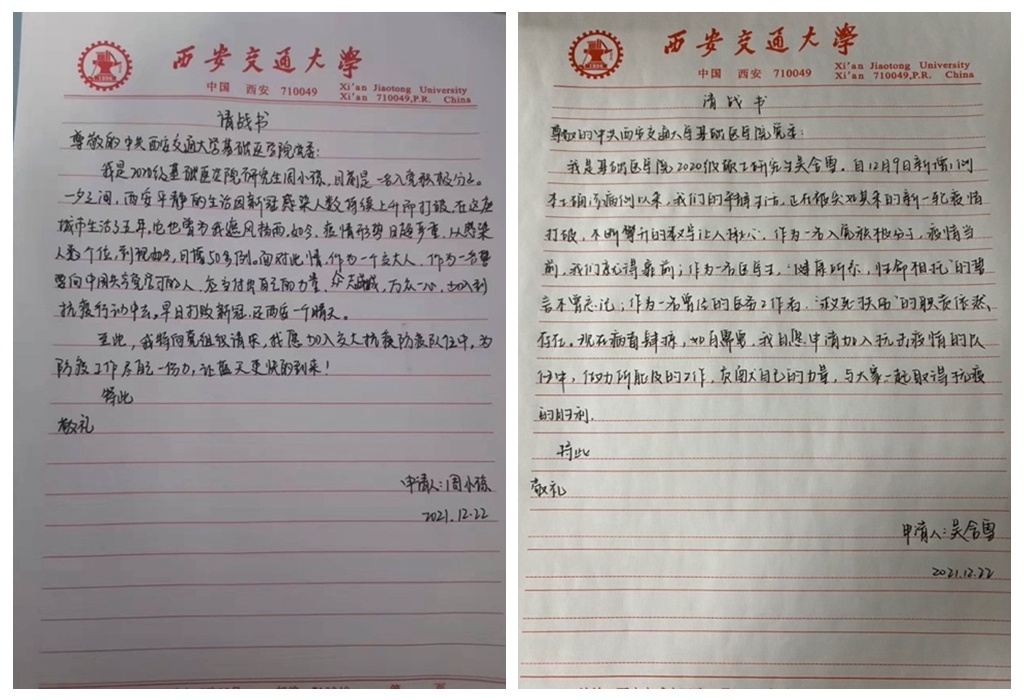 西安交通大學
中国 西安 710049
Xi'an Jiaotong University
Xi'an 710049,P.R. China
请战书
尊敬的中共西安交通大学基础医学院党委:
我是2020级基础医学院研究生周小琼,目前是一名入党积极分子。
一夕之间,西安平静的生活因新冠感染人数持续上升而打破。在这座
城市生活了五年,它也曾为我遮风挡雨。如今,疫情形势日趋严重,从感染
人数个位,到现如今,日增50多例。面对此情,作为一个交大人,作为一名誓
要向中国共产党学习的人,应当付出自己的力量,众志成城,万众一心,加入到
抗疫行动中去,早日打败新冠,还西安一个晴天。
至此,我特向党组织请示,我愿加入交大抗疫防疫队伍中,为
防疫工作尽自己一份力,让蓝天更快的到来!
特此
敬礼
申请人:周小琼
2021.12.22
西安交通大學
中国 西安 710049
Xi'an Jiaotong University
Xi'an 710049,P.R. China
请战书
尊敬的中共西安交通大学基础医学院党委:
我是基础医学院2020级硕士研究生吴含雪。自12月9日新增1例
本土确诊病例以来,我们的平静生活,正在被突如其来的新一轮疫情
打破,不断攀升的数字让人揪心。作为一名入党积极分子,疫情当
前,我们就得靠前;作为一名医学生,“健康所系,性命相托”的誓
言不曾忘记;作为一名曾经的医务工作者,“救死扶伤”的职责依然
存在。现在病毒肆虐,如有需要,我自愿申请加入抗击疫情的队
伍中,做力所能及的工作,贡献自己的力量,与大家一起取得抗疫
的胜利。
特此
敬礼
申请人:吴含雪
2021.12.22